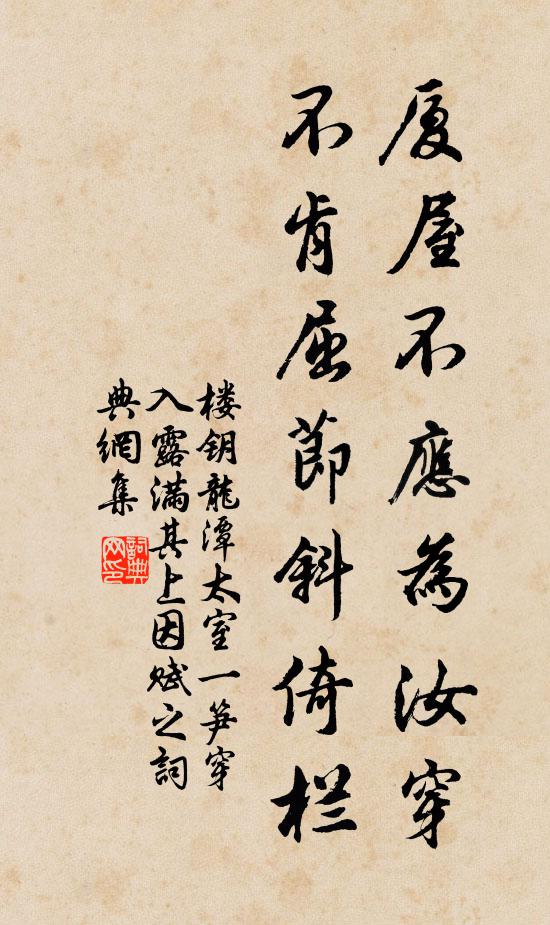 厦屋不應為汝穿
不肯屈節斜倚栏
楼钥龍潭太室一笋穿
入露滿其上因赋之詞
典網集
詞典
网印